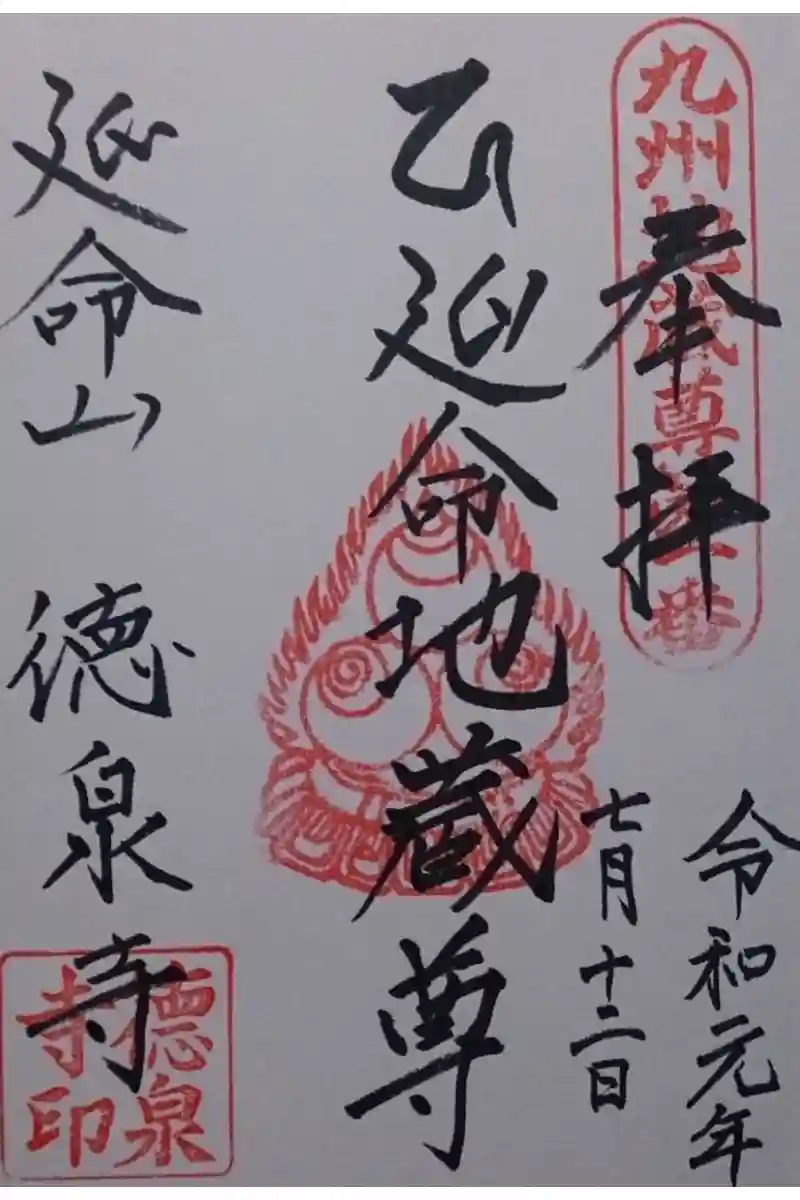 九州地蔵尊
番
奉拝
令和元年
七月十二日
延命地蔵尊
延命山 徳泉寺
徳泉
寺印